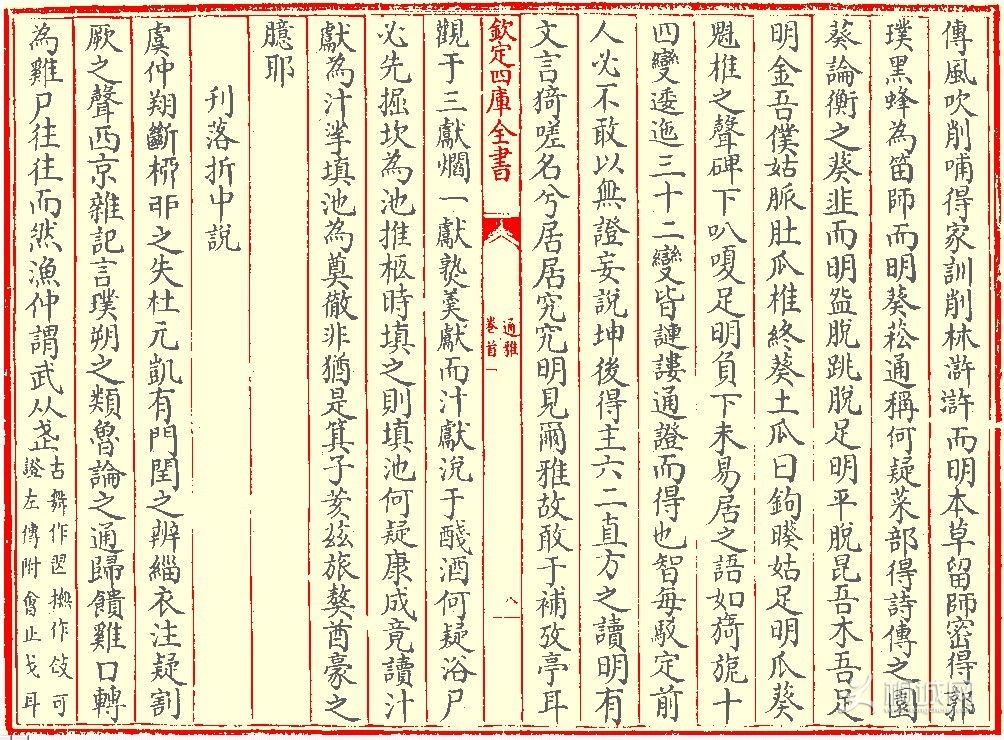 傳風吹削哺得家訓削林滸滸而明本草留師密得郭
璞黑蜂為笛師而明葵菘通稱何疑菜部得詩傳之園
葵論衡之葵韭而明盌脫跳脫足明平脫昆吾木吾足
明金吾僕姑脈肚瓜椎終葵土瓜曰鉤䁨姑足明瓜葵
魁椎之聲碑下叭嗄足明負下未易居之語如旖旎十
四變逶迤三十二變皆謰謱通證而得也智每駁定前
人必不敢以無證妄說坤後得主六二直方之讀明有
文言猗嗟名兮居居究究明見爾雅故敢于補攷亭耳
欽定四庫全書
通雅
卷首一
八
觀于三獻爓一獻熟羹獻而汁獻涗于醆酒何疑浴尸
必先掘坎為池推柩時填之則填池何疑康成竟讀汁
獻為汁㳯填池為奠徹非猶是箕子荄茲旅獒酋豪之
臆耶
刊落折中說
虞仲翔斷桺丣之失杜元凱有門閏之辨緇衣注疑割
厥之聲西京雜記言璞朔之類魯論之通歸饋雞口轉
為雞尸往往而然漁仲謂武从𢦍古舞作𦐀橆作㱽可
證左傳附會止戈耳